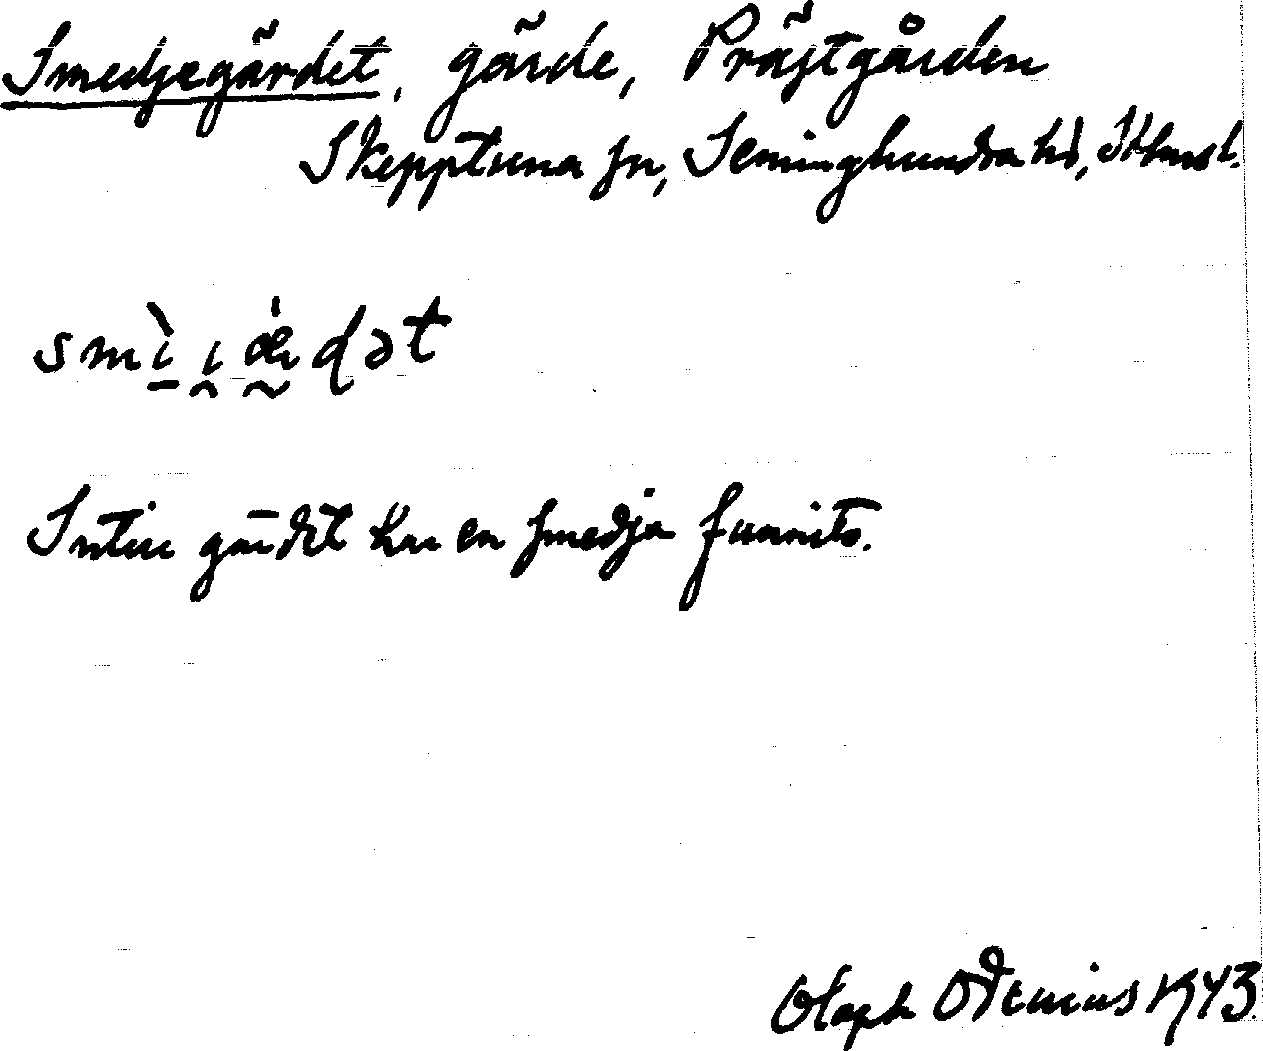 Smedjegärdet, gärde, Prästgården
Skepptuna sn, Seminghundra hd, Sthms l.
Intill gärdet har en smedja funnits.
Olaph Odenius 1943.